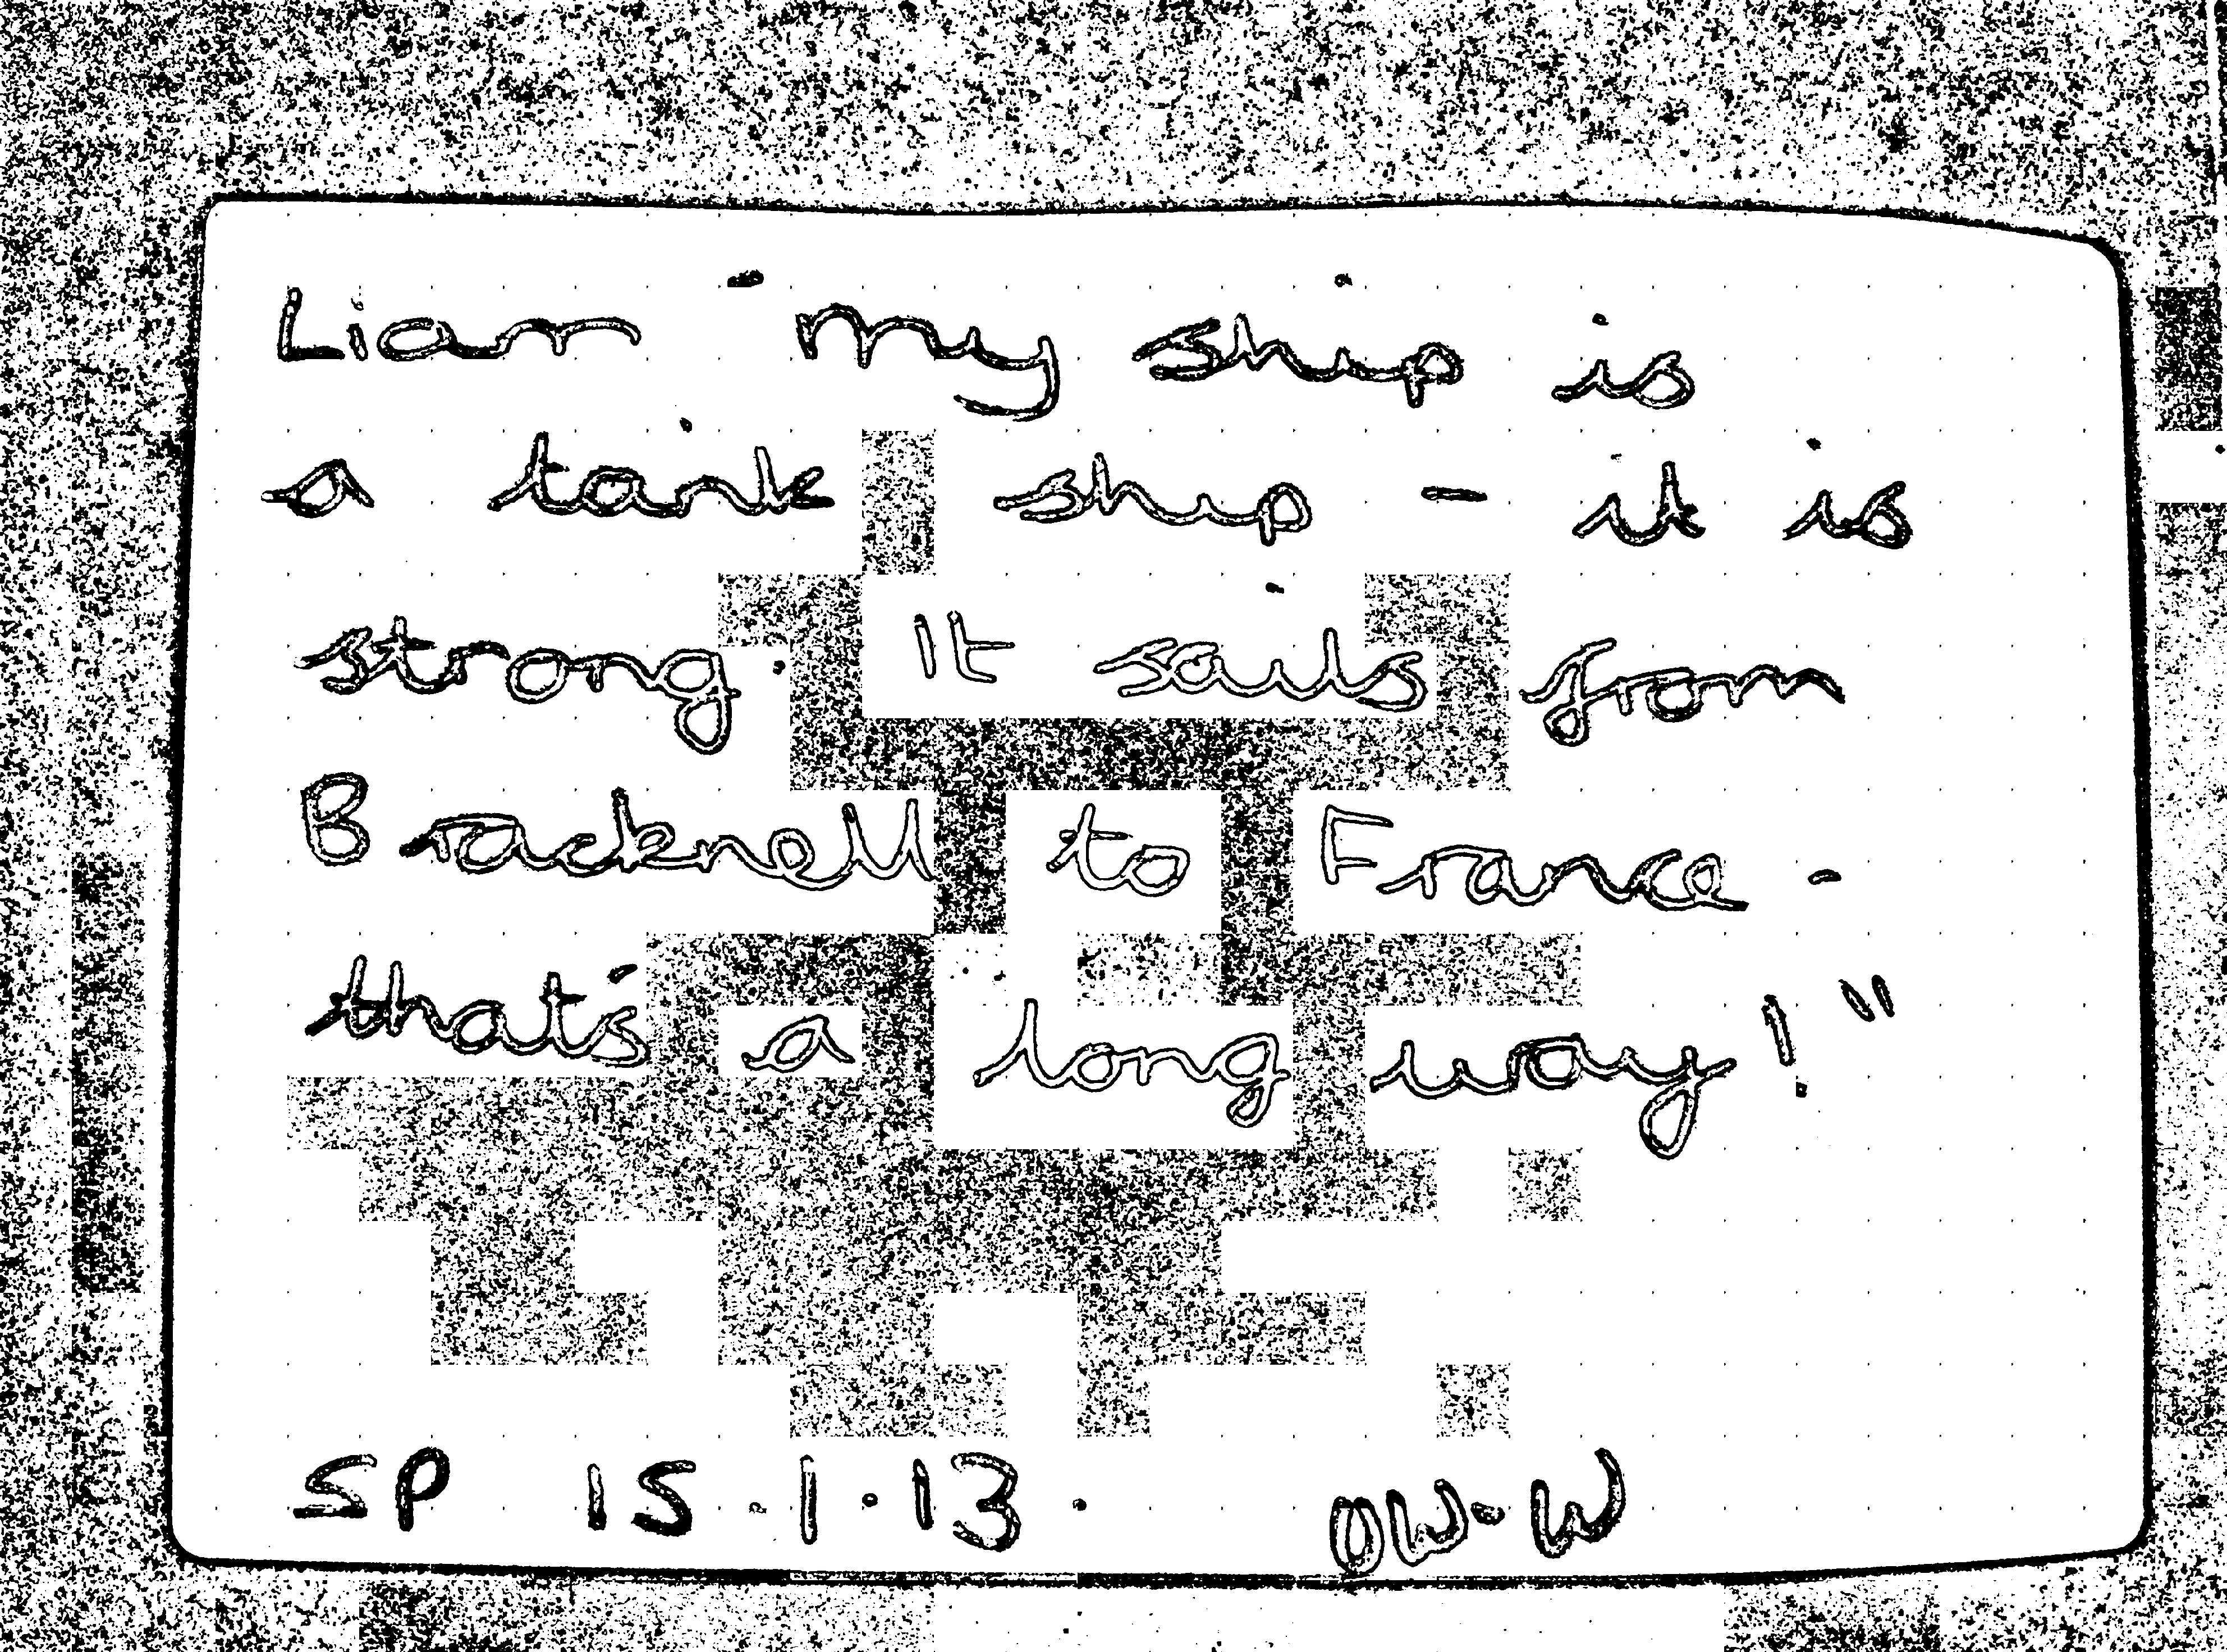 Liam "My ship is
a tank ship - it is
strong. It sails from
Bracknell to France -
that's a long way!"
SP 15.1.13. OW-W